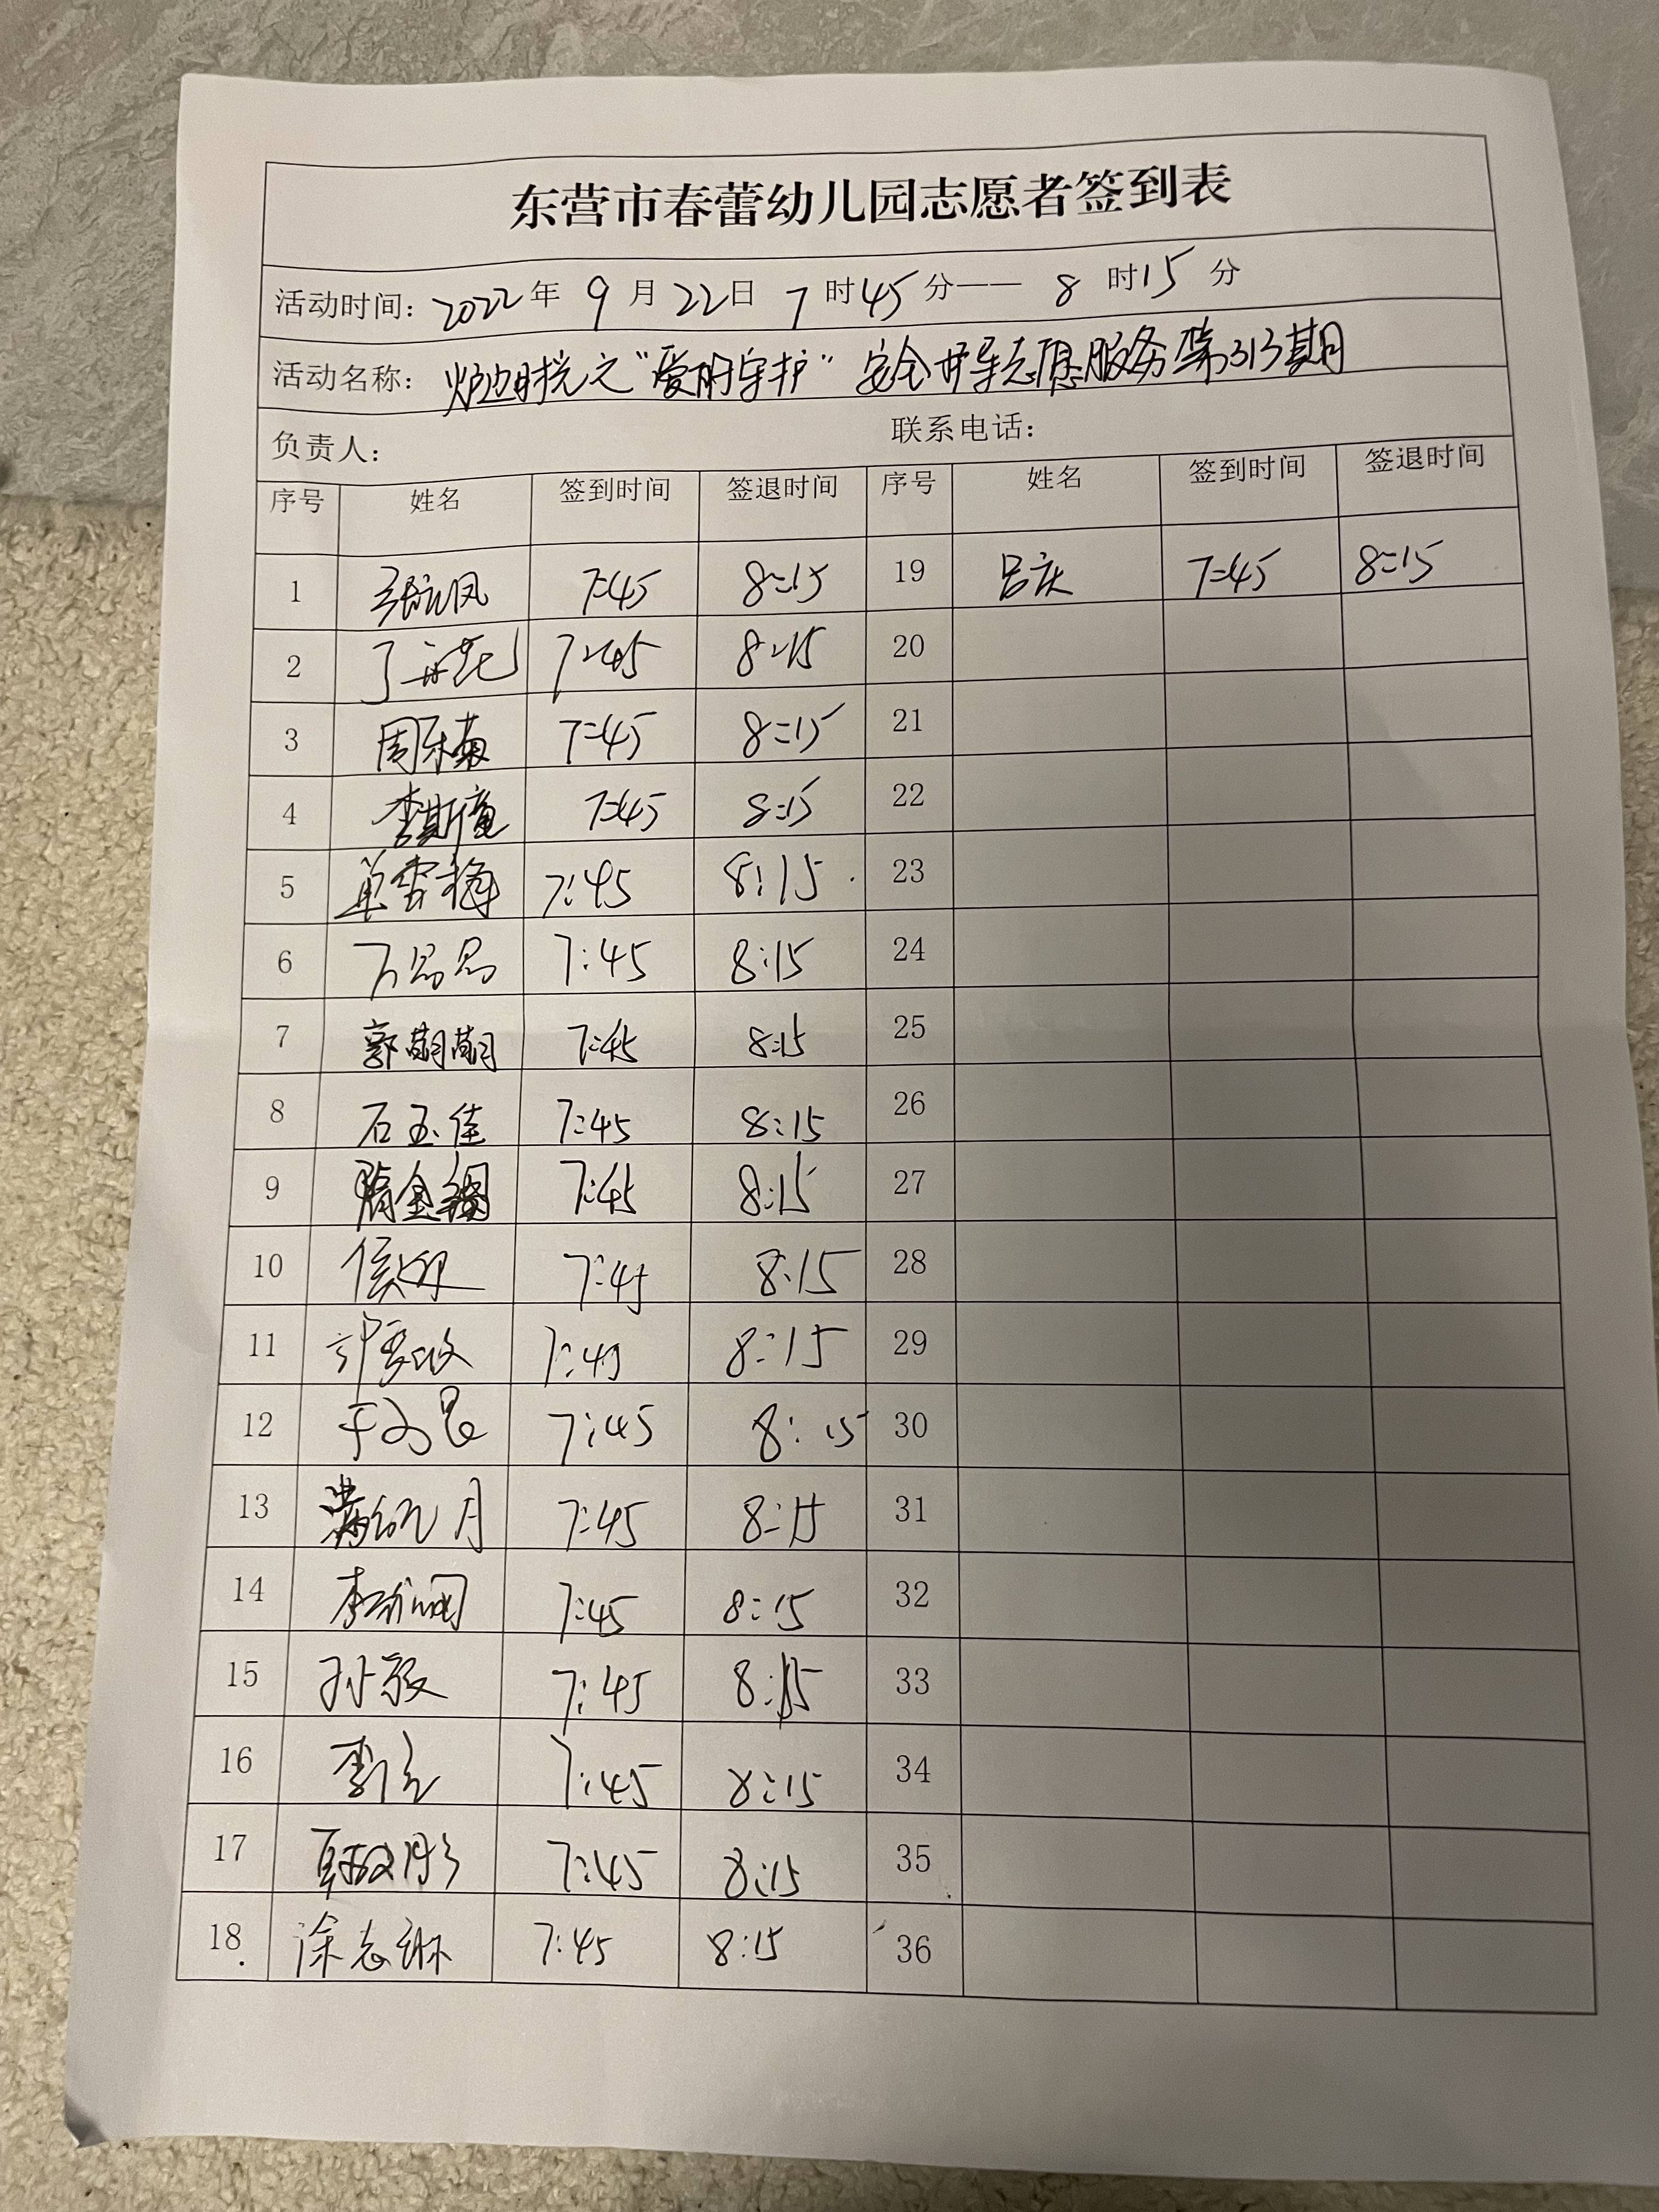 东营市春蕾幼儿园志愿者签到表
活动时间: 2022年 9 月 22日 7 时45 分—— 8 时15 分
活动名称: 炉边时光之“爱的守护”安全护导志愿服务第313期
负责人: 联系电话:
序号 姓名 签到时间 签退时间 序号 姓名 签到时间 签退时间
1 7:45 8:15 19 吕庆 7:45 8:15
2 7:45 8:15 20
3 周乐菊 7:45 8:15 21
4 7:45 8:15 22
5 单雪梅 7:45 8:15 23
6 7:45 8:15 24
7 郭萌萌 7:45 8:15 25
8 石玉佳 7:45 8:15 26
9 隋金 7:45 8:15 27
10 7:45 8:15 28
11 7:45 8:15 29
12 7:45 8:15 30
13 7:45 8:15 31
14 7:45 8:15 32
15 孙敏 7:45 8:15 33
16 7:45 8:15 34
17 7:45 8:15 35
18 涂志琳 7:45 8:15 36